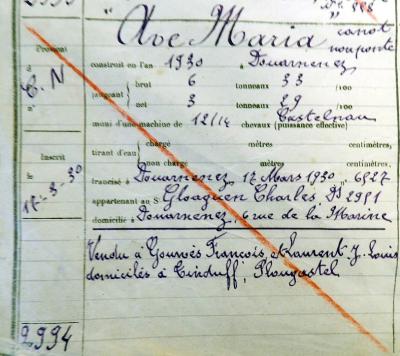 "Ave Maria" canot
non ponté
Provenant
construit en l'an 1930 à Douarnenez
à
C. N
jaugeant brut 6 tonneaux 33 /100
net 3 tonneaux 29 /100
n°
muni d'une machine de 12/14 chevaux (puissance effective) Castelnau
tirant d'eau chargé mètres centimètres,
non chargé mètres centimètres,
Inscrit
le
17-3-30
francisé à Douarnenez, 17 Mars 1930 n° 6827
appartenant au S Gloaguen Charles, Ds 2981
domicilié à Douarnenez, 6 rue de la Marine
Vendu à Gourvès François, et Laurent J. Louis
domiciliés à Tinduff, Plougastel
2994